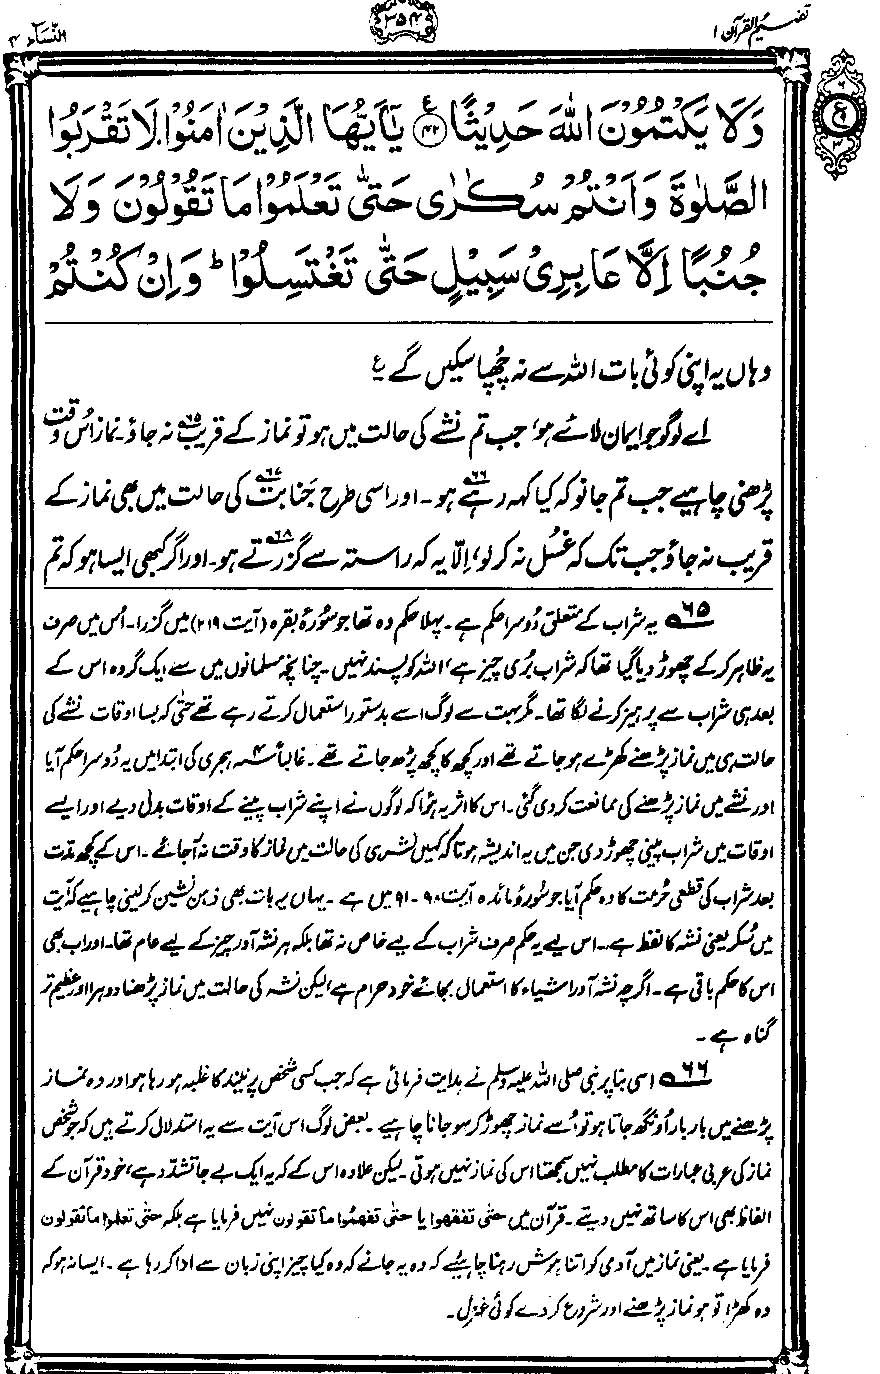 تفہیم القرآن ۱
۳۵۴
النساء ۴
وَلَا يَكْتُمُوْنَ اللّٰهَ حَدِيْثًا ﴿۴۲﴾ يٰٓاَيُّهَا الَّذِيْنَ اٰمَنُوْا لَا تَقْرَبُوا
الصَّلٰوةَ وَاَنْتُمْ سُكٰرٰى حَتّٰى تَعْلَمُوْا مَا تَقُوْلُوْنَ وَلَا
جُنُبًا اِلَّا عَابِرِيْ سَبِيْلٍ حَتّٰى تَغْتَسِلُوْا ؕ وَاِنْ كُنْتُمْ
وہاں یہ اپنی کوئی بات اللہ سے نہ چھپا سکیں گے ع
اے لوگو جو ایمان لائے ہو، جب تم نشے کی حالت میں ہو تو نماز کے قریب۶۵ نہ جاؤ۔ نماز اُس وقت
پڑھنی چاہیے جب تم جانو کہ کیا کہہ رہے۶۶ ہو۔ اور اسی طرح جَنابت۶۷ کی حالت میں بھی نماز کے
قریب نہ جاؤ جب تک کہ غسل نہ کر لو، اِلّا یہ کہ راستہ سے گزرتے۶۸ ہو۔ اور اگر کبھی ایسا ہو کہ تم
۶۵ یہ شراب کے متعلق دُوسرا حکم ہے۔ پہلا حکم وہ تھا جو سُورۂ بقرہ (آیت ۲۱۹) میں گزرا۔ اُس میں صرف
یہ ظاہر کر کے چھوڑ دیا گیا تھا کہ شراب بُری چیز ہے، اللہ کو پسند نہیں۔ چنانچہ مسلمانوں میں سے ایک گروہ اس کے
بعد ہی شراب سے پرہیز کرنے لگا تھا۔ مگر بہت سے لوگ اسے بدستور استعمال کرتے رہے تھے حتٰی کہ بسا اوقات نشے کی
حالت ہی میں نماز پڑھنے کھڑے ہو جاتے تھے اور کچھ کا کچھ پڑھ جاتے تھے۔ غالباً ۴ ہجری کی ابتدا میں یہ دُوسرا حکم آیا
اور نشے میں نماز پڑھنے کی ممانعت کر دی گئی۔ اس کا اثر یہ ہؤا کہ لوگوں نے اپنے شراب پینے کے اوقات بدل دیے اور ایسے
اوقات میں شراب پینی چھوڑ دی جن میں یہ اندیشہ ہوتا کہ کہیں نشہ ہی کی حالت میں نماز کا وقت نہ آجائے۔ اس کے کچھ مدت
بعد شراب کی قطعی حُرمت کا وہ حکم آیا جو سُورۂ مائدہ آیت ۹۰۔۹۱ میں ہے۔ یہاں یہ بات بھی ذہن نشین کر لینی چاہیے کہ آیت
میں سُکر یعنی نشہ کا لفظ ہے۔ اس لیے یہ حکم صرف شراب کے لیے خاص نہ تھا بلکہ ہر نشہ آور چیز کے لیے عام تھا۔ اور اب بھی
اس کا حکم باقی ہے۔ اگرچہ نشہ آور اشیاء کا استعمال بجائے خود حرام ہے، لیکن نشہ کی حالت میں نماز پڑھنا دوہرا اور عظیم تر
گناہ ہے۔
۶۶ اسی بنا پر نبی صلی اللہ علیہ وسلم نے ہدایت فرمائی ہے کہ جب کسی شخص پر نیند کا غلبہ ہو رہا ہو اور وہ نماز
پڑھنے میں بار بار اُونگھ جاتا ہو تو اُسے نماز چھوڑ کر سو جانا چاہیے۔ بعض لوگ اس آیت سے یہ استدلال کرتے ہیں کہ جو شخص
نماز کی عربی عبارات کا مطلب نہیں سمجھتا اس کی نماز نہیں ہوتی۔ لیکن علاوہ اس کے کہ یہ ایک بے جا تشدّد ہے، خود قرآن کے
الفاظ بھی اس کا ساتھ نہیں دیتے۔ قرآن میں حتٰی تفقھوا یا حتٰی تفھموا ما تقولون نہیں فرمایا ہے بلکہ حتٰی تعلموا ما تقولون
فرمایا ہے۔ یعنی نماز میں آدمی کو اتنا ہوش رہنا چاہیے کہ وہ یہ جانے کہ وہ کیا چیز اپنی زبان سے ادا کر رہا ہے۔ ایسا نہ ہو کہ
وہ کھڑا تو ہو نماز پڑھنے اور شروع کر دے کوئی غزل۔